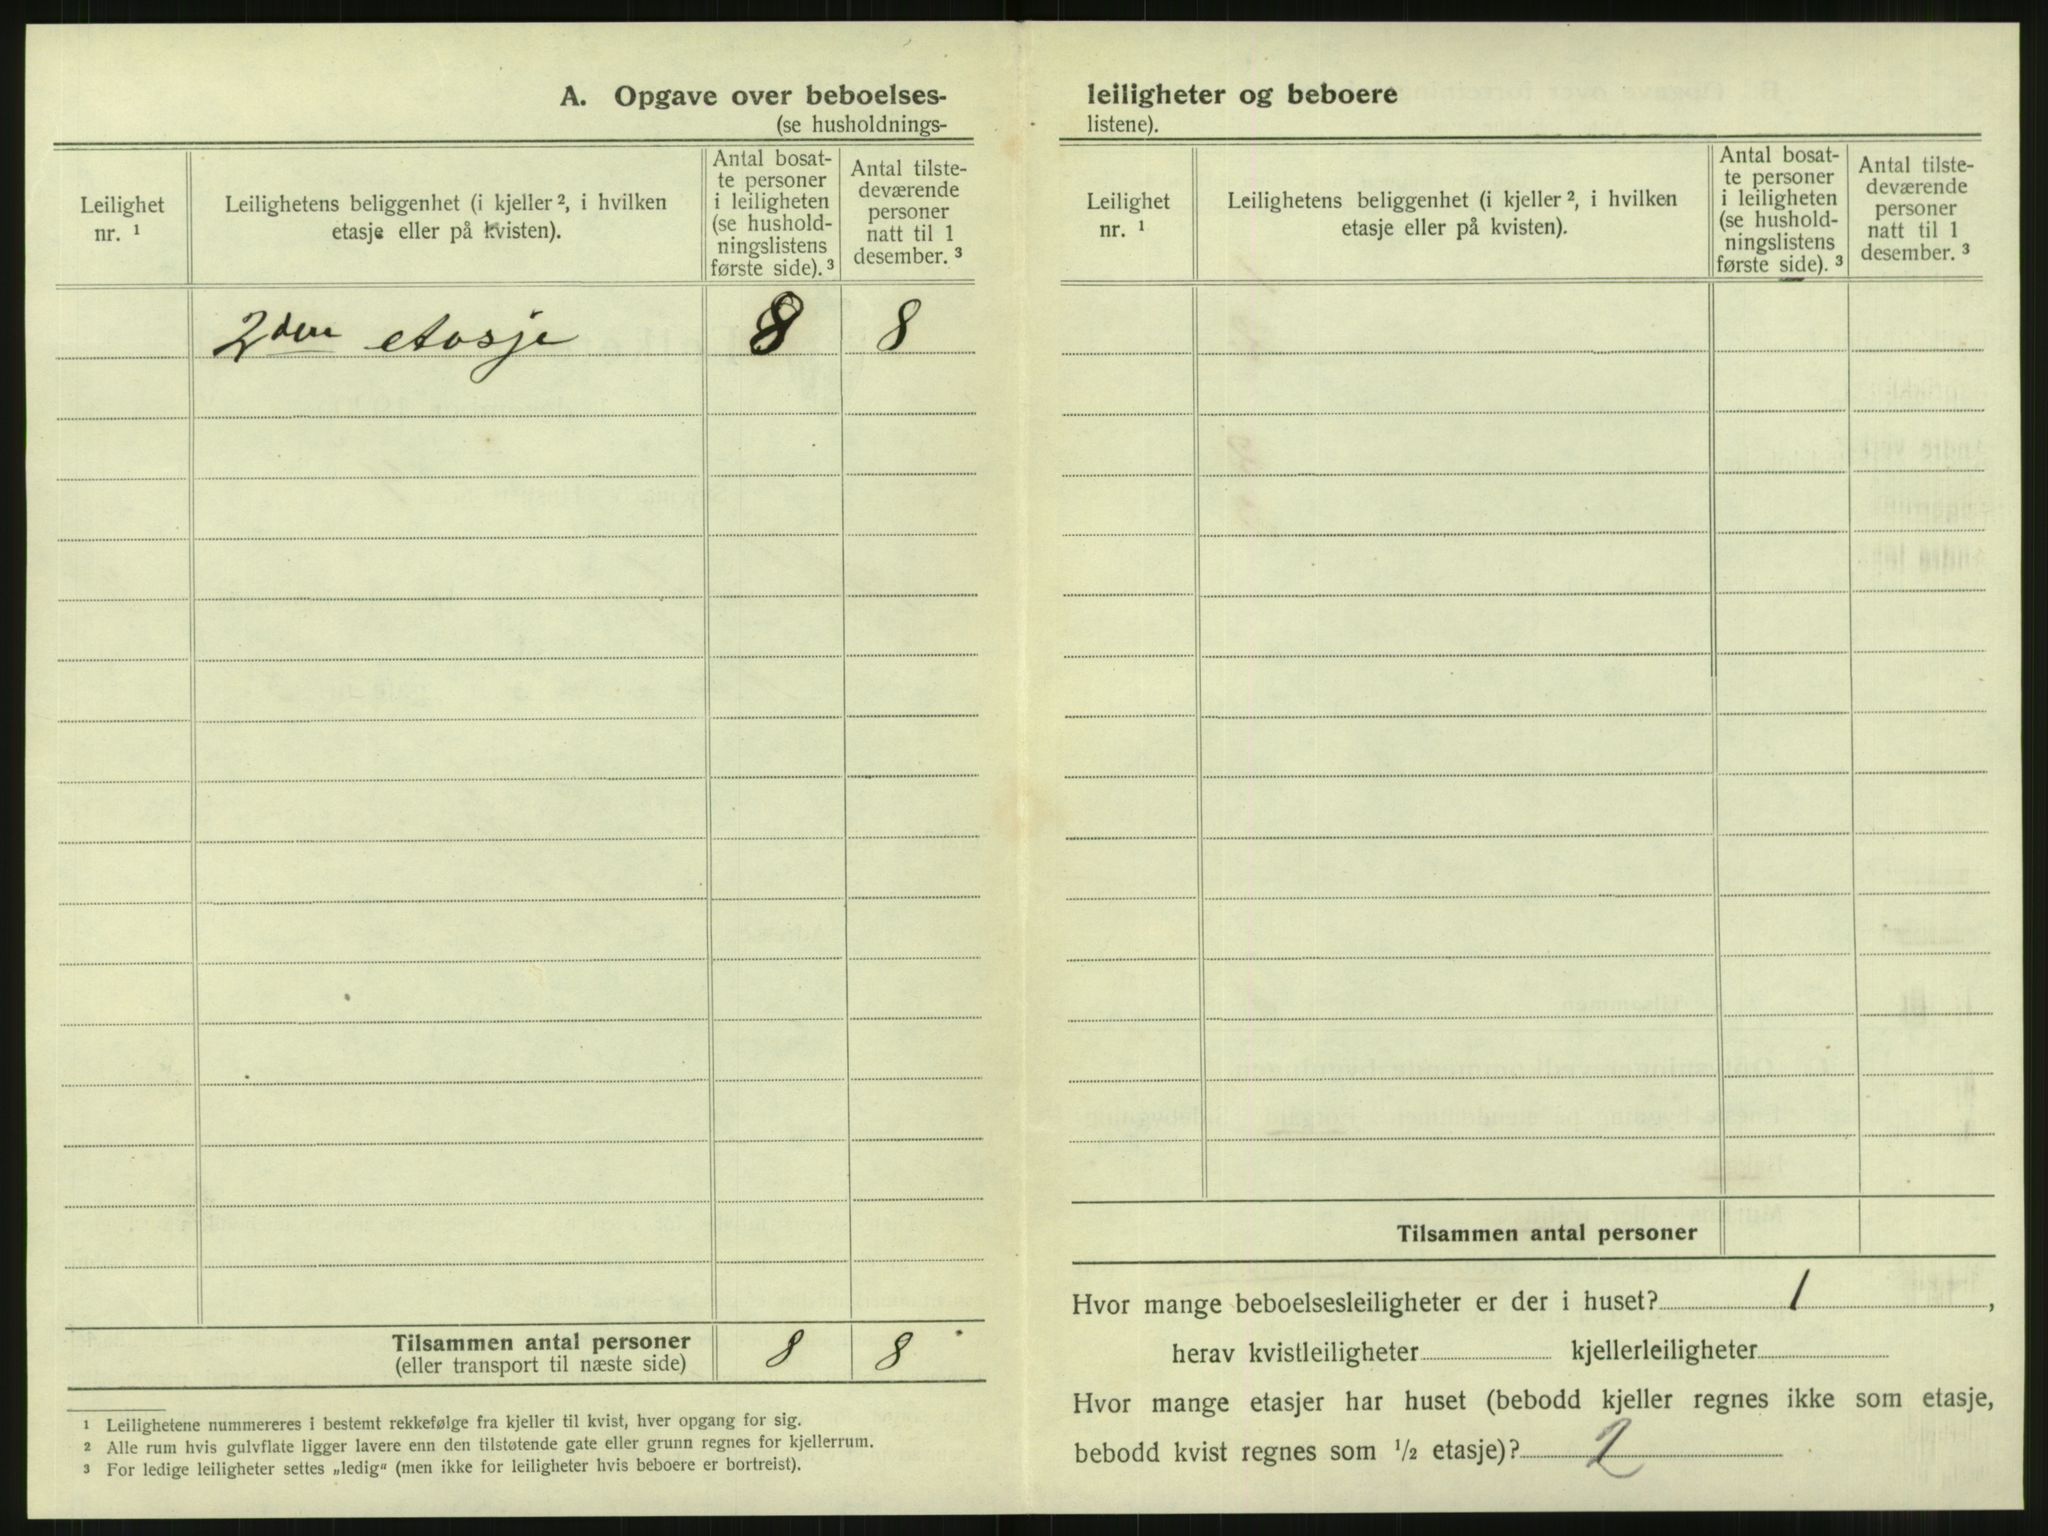 A. Opgave over beboelses-
(se husholdnings-
Leilighet
nr. ¹
Leilighetens beliggenhet (i kjeller ², i hvilken
etasje eller på kvisten).
Antal bosat-
te personer
i leiligheten
(se hushold-
ningslistens
første side). ³
Antal tilste-
deværende
personer
natt til 1
desember. ³
2den etasje 8 8
Tilsammen antal personer 8 8
(eller transport til næste side)
¹ Leilighetene nummereres i bestemt rekkefølge fra kjeller til kvist, hver opgang for sig.
² Alle rum hvis gulvflate ligger lavere enn den tilstøtende gate eller grunn regnes for kjellerrum.
³ For ledige leiligheter settes „ledig“ (men ikke for leiligheter hvis beboere er bortreist).
leiligheter og beboere
listene).
Leilighet
nr. ¹
Leilighetens beliggenhet (i kjeller ², i hvilken
etasje eller på kvisten).
Antal bosat-
te personer
i leiligheten
(se hushold-
ningslistens
første side). ³
Antal tilste-
deværende
personer
natt til 1
desember. ³
Tilsammen antal personer
Hvor mange beboelsesleiligheter er der i huset? 1 ,
herav kvistleiligheter kjellerleiligheter
Hvor mange etasjer har huset (bebodd kjeller regnes ikke som etasje,
bebodd kvist regnes som ½ etasje)? 2